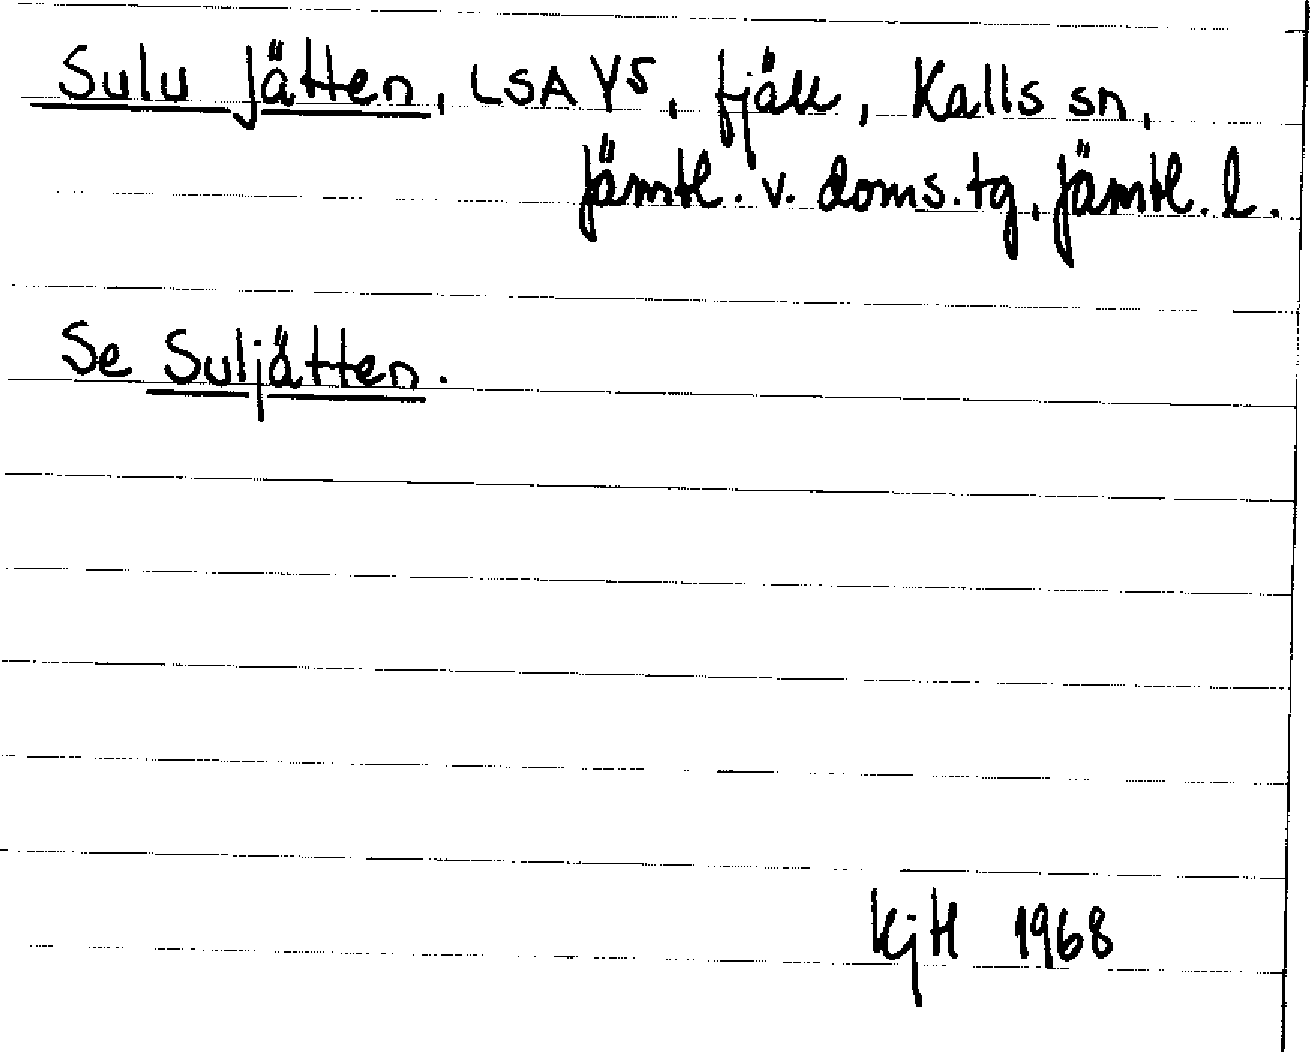 Sulu Jätten, LSA Y5, fjäll, Kalls sn,
Jämtl. v. doms.tg, Jämtl. l.
Se Suljätten.
KjH 1968